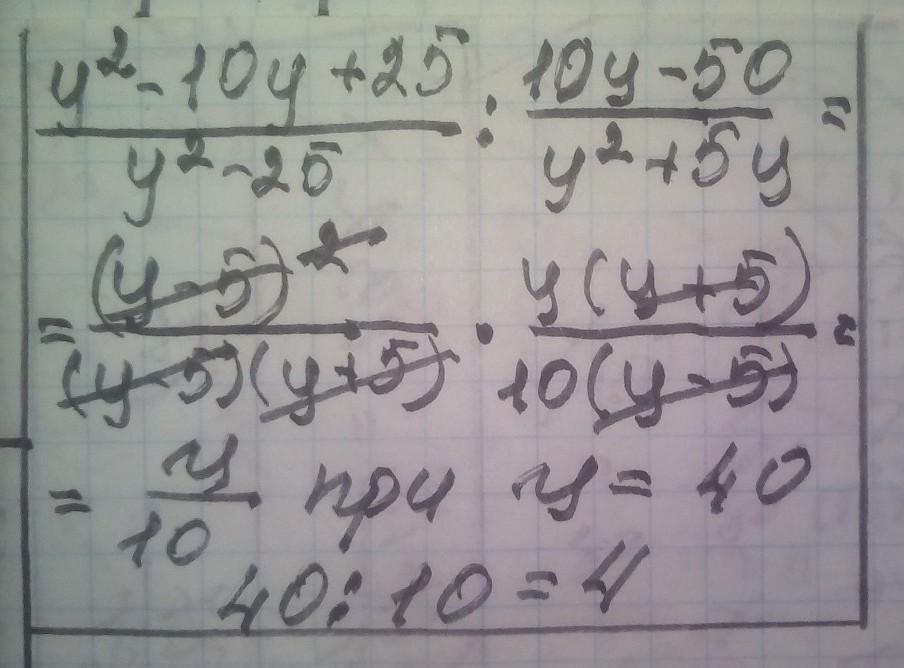 (y² - 10y + 25)/(y² - 25) : (10y - 50)/(y² + 5y) =
= (y - 5)²/((y - 5)(y + 5)) · y(y + 5)/(10(y - 5)) =
= y/10 при y = 40
40 : 10 = 4